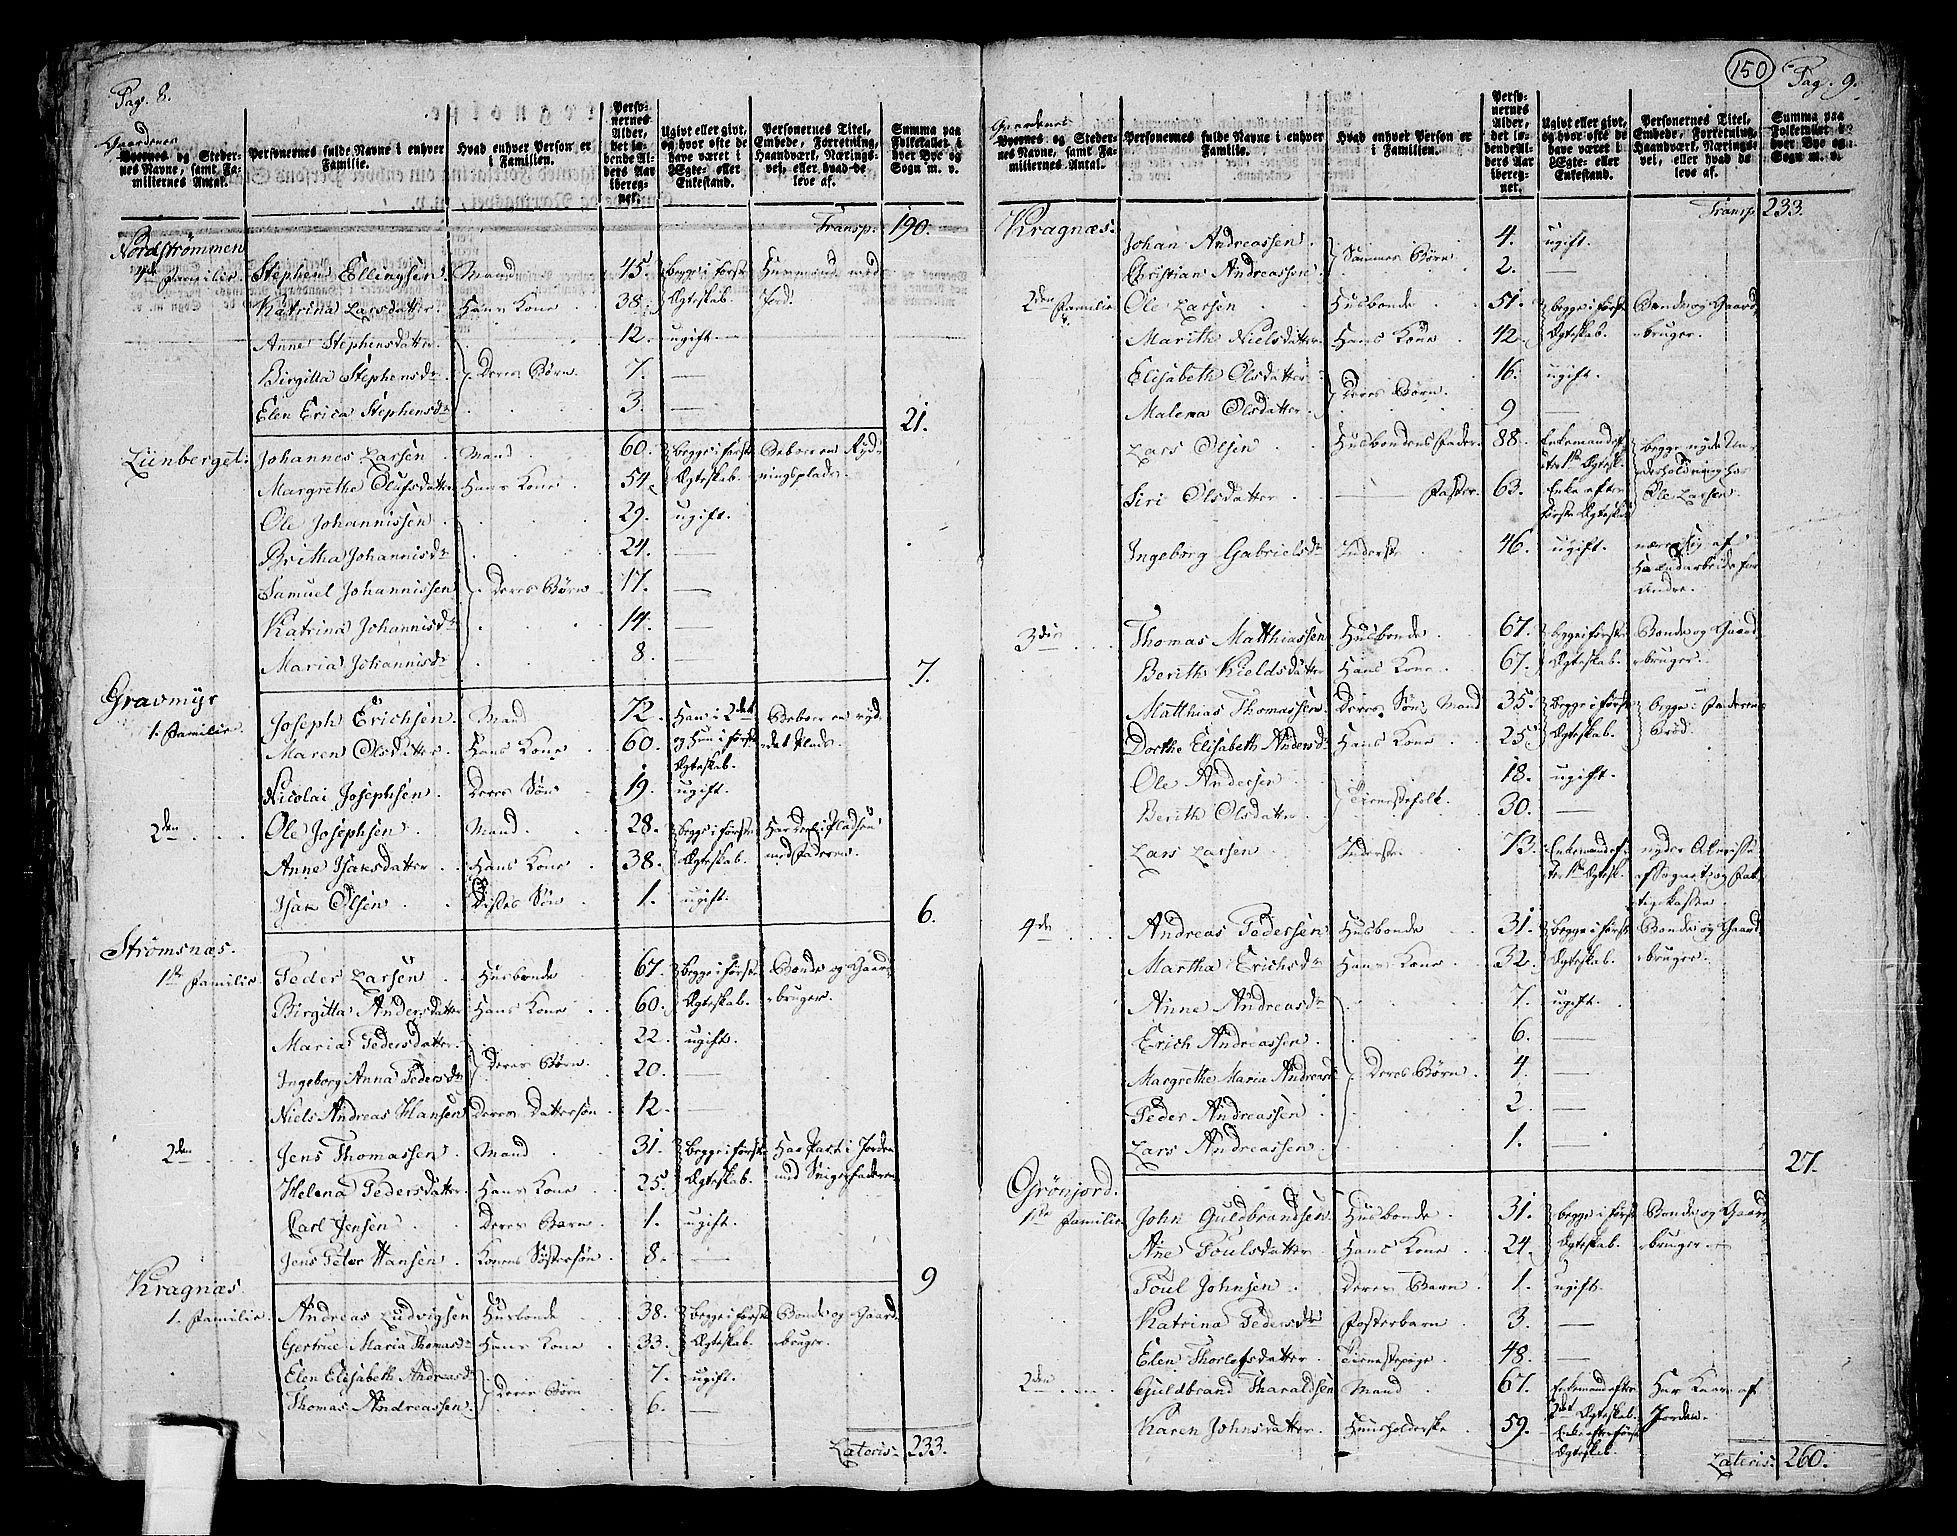 Pag. 8.
Gaardenes
Byernes og Stedernes Navne, samt Familiernes Antal.
Personernes fulde Navne i enhver Familie.
Hvad enhver Person er i Familien.
Personernes Alder, det løbende Alders Aar iberegnet.
Ugivt eller givt, og hvor ofte de have været i Ægte- eller Enkestand.
Personernes Titel, Embede, Forretning, Haandværk, Næringsvei, eller hvad de leve af.
Summa paa Folketallet i hver Bye og Sogn m. v.
Transp. 190.
Nordstrømmen
4de Familie. Stephen Ellingsen Mand 45. begge i først Huusmand med
Katrina Larsdatter Hans Kone 38. Ægteskab. Jord.
Anne Stephensdatter 12. ugift.
Birgitta Stephensdr Deres Børn 7. —
Elen Erica Stephensdr 3. — 21.
Lünberget. Johannes Larsen Mand 60. begge i først Beboer en Ryd-
Margrethe Olufsdatter Hans Kone 54. Ægteskab. ningsplads.
Ole Johannissen 29. ugift.
Britha Johannisdr 24. —
Samuel Johannissen Deres Børn 17. —
Katrina Johannisdr 14. —
Maria Johannisdr 8. — 7.
Gravmyr
1. Familie. Joseph Erichsen Mand 72. Han i 2det Beboer en ryd-
Maren Olsdatter Hans Kone 60. og Hun i først det Plads.
Ægteskab.
Nicolai Josephsen Deres Søn 19. ugift.
2den Ole Josephsen Mand 28. begge i første Har Deel i Pladsen
Anne Isaksdatter Hans Kone 38. Ægteskab. med Faderen.
Isak Olsen Disses Søn 1. ugift. 6.
Strømsnæs.
1ste Familie Peder Larsen Husbonde 67. begge i først Bonde og Gaard
Birgitta Andersdatter Hans Kone 60. Ægteskab. bruger.
Maria Pedersdatter 22. ugift.
Ingeborg Anna Pedersdr Deres Børn 20. —
Niels Andreas Hansen Deres Dattersøn 12. —
2den Jens Thomassen Mand 31. begge i først Har Part i Jorden
Helena Pedersdatter Hans Kone 25. Ægteskab. med Svigerfaderen
Carl Jensen Deres Barn 1. ugift.
Jens Peter Hansen Konens Søstersøn 8. — 9
Kragnæs
1. Familie Andreas Ludvigsen Husbonde 38. begge i først Bonde og Gaard
Gertrue Maria Thomasdr Hans Kone 33. Ægteskab. bruger.
Elen Elisabeth Andreasdr 7. ugift.
Thomas Andreassen Deres Børn 6. —
Lateris 233.
150
Pag. 9.
Gaardenes
Byernes og Stedernes Navne, samt Familiernes Antal.
Personernes fulde Navne i enhver Familie.
Hvad enhver Person er i Familien.
Personernes Alder, det løbende Alders Aar iberegnet.
Ugivt eller givt, og hvor ofte de have været i Ægte- eller Enkestand.
Personernes Titel, Embede, Forretning, Haandværk, Næringsvei, eller hvad de leve af.
Summa paa Folketallet i hver Bye og Sogn m. v.
Transp. 233.
Kragnæs. Johan Andreassen 4. ugift.
Christian Andreassen Sammes Børn 2. —
2den Familie Ole Larsen Husbonde 51. begge i først Bonde og Gaard
Marith Nielsdatter Hans Kone 42. Ægteskab. bruger.
Elisabeth Olsdatter 16. ugift.
Malena Olsdatter Deres Børn 9 —
Lars Olsen Husbondens Fader 88. Enkemand ef- begge nyde Un-
ter 1ste Ægtesk. derholdning hos
Siri Olsdatter — Faster 63. Enke efter Ole Larsen.
første Ægteskab
Ingeborg Gabrielsdr Inderste 46. ugift. nærer sig af
Haandarbeide for
Andre.
3die Thomas Matthiassen Husbonde 67. begge i først Bonde og Gaard
Berith Kieldsdatter Hans Kone 67. Ægteskab. bruger.
Matthias Thomassen Deres Søn, Mand 35. begge i først begge i Faderens
Dorthe Elisabeth Andersdr Hans Kone 25. Ægteskab. Brød.
Ole Andersen 18. ugift.
Berith Olsdatter Tienestefolk 30. —
Lars Larsen Inderste 73. Enkemand ef- nyder Almisse
ter 1ste Ægtesk. af Sognets og Fat-
tigekasse.
4de Andreas Pedersen Husbonde 31. begge i først Bonde og Gaard
Martha Erichsdr Hans Kone 32. Ægteskab. bruger.
Anne Andreasdr 7. ugift.
Erich Andreassen 6. —
Margrethe Maria Andreasd Deres Børn 4. —
Peder Andreassen 2. —
Lars Andreassen 1. — 27.
Grønjord.
1ste Familie John Guldbrandsen Husbonde 31. begge i først Bonde og Gaard
Ane Poulsdatter Hans Kone 24. Ægteskab. bruger.
Poul Johnsen Deres Barn 1. ugift.
Katrina Pedersdr Fosterbarn 3. —
Elen Thorlofsdatter Tienestepige 48. —
2den Guldbrand Tharaldsen Mand 67. Enkemand efter Har Kaar af
2det Ægteskab. Jorden.
Karen Johnsdatter Huusholderske 59. Enke efter først
Ægteskab.
Lateris 260.